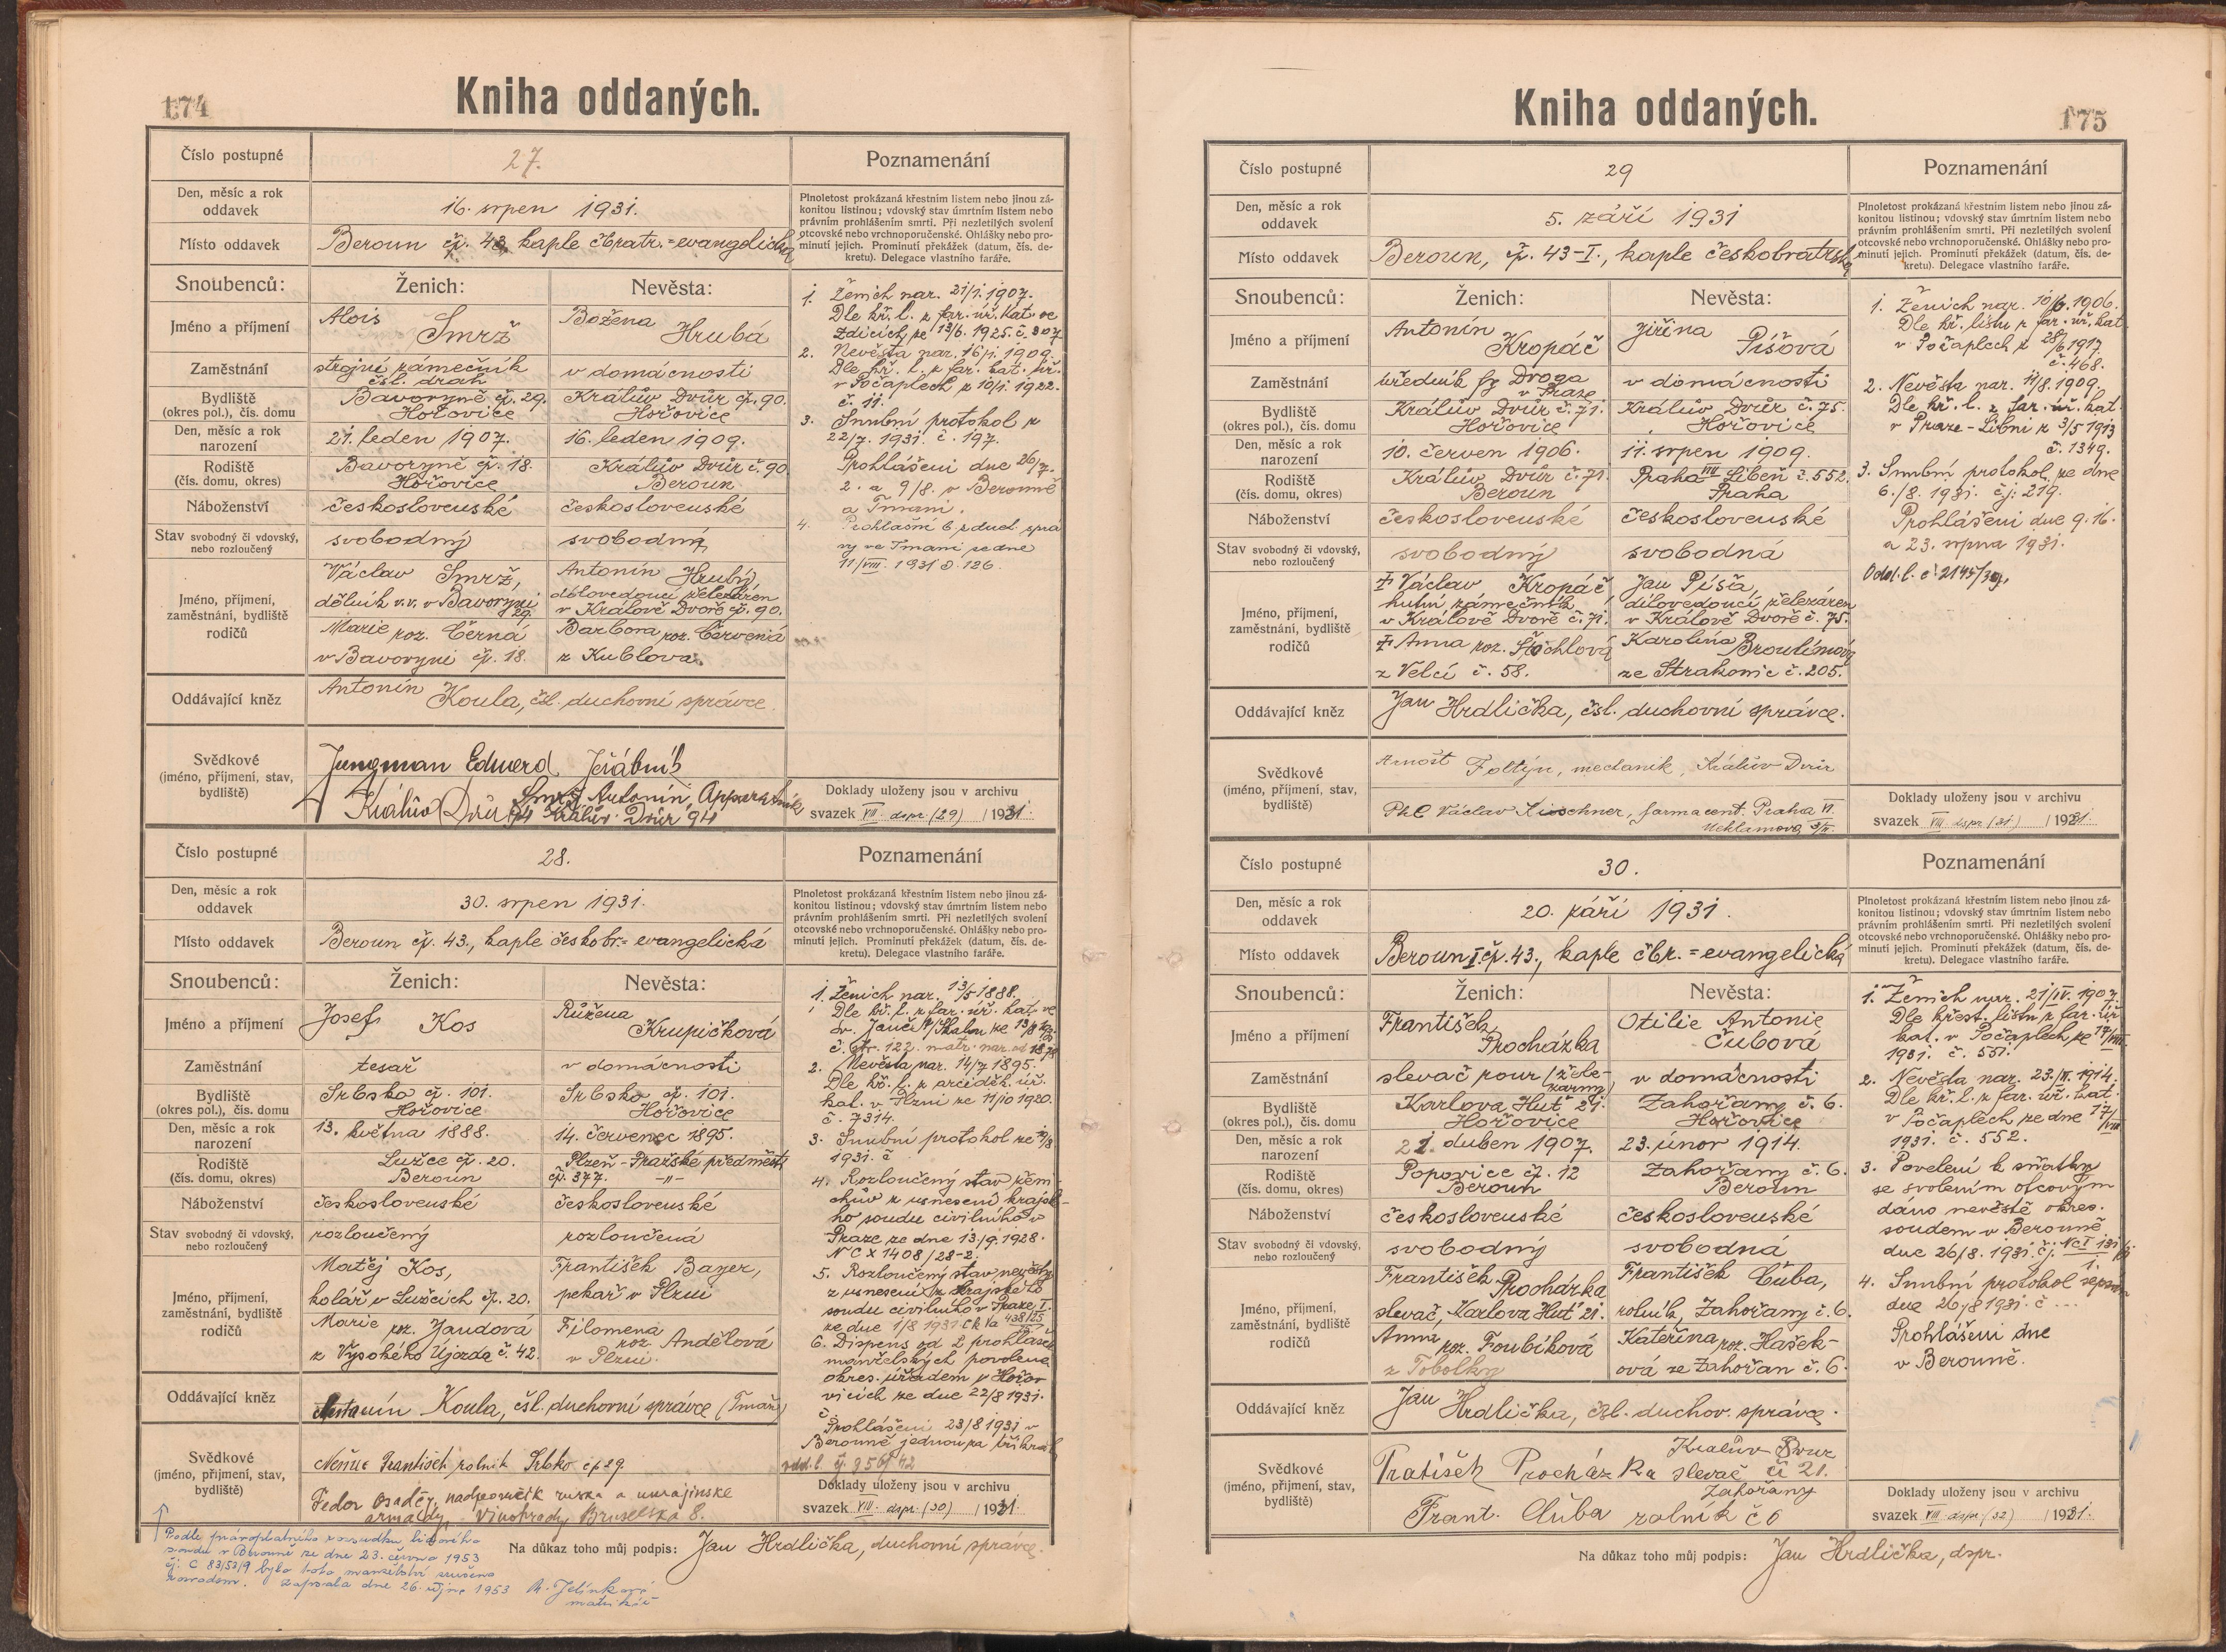 174
Kniha oddaných.
Číslo postupné
27.
Poznamenání
Den, měsíc a rok
oddavek
16. srpen 1931.
Plnoletost prokázaná křestním listem nebo jinou zá-
konitou listinou; vdovský stav úmrtním listem nebo
právním prohlášením smrti. Při nezletilých svolení
otcovské nebo vrchnoporučenské. Ohlášky nebo pro-
minutí jejich. Prominutí překážek (datum, čís. de-
kretu). Delegace vlastního faráře.
Místo oddavek
Beroun čp. 43, kaple čbratr.=evangelická
Snoubenců:
Ženich:
Nevěsta:
Jméno a příjmení
Alois Smrž
Božena Hrubá
Zaměstnání
strojní zámečník
čsl. drah
v domácnosti
Bydliště
(okres pol.), čís. domu
Bavoryně čp. 29.
Hořovice
Králův Dvůr čp. 90.
Hořovice
Den, měsíc a rok
narození
21. leden 1907.
16. leden 1909.
Rodiště
(čís. domu, okres)
Bavoryně čp. 18.
Hořovice
Králův Dvůr č. 90
Beroun
Náboženství
československé
československé
Stav svobodný či vdovský,
nebo rozloučený
svobodný
svobodná
Jméno, příjmení,
zaměstnání, bydliště
rodičů
Václav Smrž,
dělník v.v. v Bavoryni
29.
Marie roz. Černá
v Bavoryni čp. 18.
Antonín Hrubý,
dílovedoucí železáren
v Králově Dvoře čp. 90.
Barbora roz. Červená
z Kublova.
1. Ženich nar. 21/1. 1907.
Dle kř. l. z far. úř. kat. ve
Zdicích, ze 13/6. 1925. č. 307
2. Nevěsta nar. 16/1. 1909.
Dle kř. l. z far. kat. úř.
v Počaplech, z 10/1. 1922.
č. 11.
3. Snubní protokol z
22/7. 1931. č. 197.
Prohlášení dne 26/7.
2. a 9/8. v Berouně
a Tmani.
4. Prohlášní l. z duch. sprá
vy ve Tmani ze dne
11/VIII. 1931 č. 126.
Oddávající kněz
Antonín Koula, čsl. duchovní správce.
Svědkové
(jméno, příjmení, stav,
bydliště)
Jungman Eduard Jeřábník
Králův Dvůr 94
Smrž Antonín,
Králův Dvůr 94
Doklady uloženy jsou v archivu
svazek VIII. dspr. (29) / 1931.
Číslo postupné
28.
Poznamenání
Den, měsíc a rok
oddavek
30. srpen 1931.
Plnoletost prokázaná křestním listem nebo jinou zá-
konitou listinou; vdovský stav úmrtním listem nebo
právním prohlášením smrti. Při nezletilých svolení
otcovské nebo vrchnoporučenské. Ohlášky nebo pro-
minutí jejich. Prominutí překážek (datum, čís. de-
kretu). Delegace vlastního faráře.
Místo oddavek
Beroun čp. 43., kaple českobr.=evangelická
Snoubenců:
Ženich:
Nevěsta:
Jméno a příjmení
Josef Kos
Růžena Krupičková
Zaměstnání
tesař
v domácnosti
Bydliště
(okres pol.), čís. domu
Srbsko čp. 101.
Hořovice
Srbsko čp. 101.
Hořovice
Den, měsíc a rok
narození
13. května 1888.
14. červenec 1895.
Rodiště
(čís. domu, okres)
Lužce čp. 20.
Beroun
Plzeň-Pražské předměstí
čp. 377. -"-
Náboženství
československé
československé
Stav svobodný či vdovský,
nebo rozloučený
rozloučený
rozloučená
Jméno, příjmení,
zaměstnání, bydliště
rodičů
Matěj Kos,
kolář v Lužcích čp. 20.
Marie roz. Jandová
z Vysokého Újezda č. 42.
František Bayer,
pekař v Plzni
Filomena
roz. Andělová
v Plzni.
1. Ženich nar. 13/5 1888.
Dle kř. l. z far. úř. kat. ve
sv. Janě p/Skalou ze
č. str. 122. matr. nar. od 1878
2. Nevěsta nar. 14/7 1895.
Dle kř. l. z arciděk. úř.
kat. v Plzni ze 11/10 1920.
č. 7314.
3. Snubní protokol ze
1931. č
4. Rozloučený stav ženi-
chův z usnesení krajské-
ho soudu civilního v
Praze ze dne 13./9. 1928.
N C X 1408/28-2.
5. Rozloučený stav nevěsty
z usnesení krajského
soudu civilního v Praze I.
ze dne 1/8 1931 Ck Ia 438/25
6. Dispens od 2 prohlášek
manželských povolena
okres. úřadem v Hořo-
vicích ze dne 22/8 1931.
č.
Prohlášení 23/8 1931 v
Berouně jednou za třikrát
odd. l. čj. 856/42
Oddávající kněz
Antonín Koula, čsl. duchovní správce (Tmaň)
Svědkové
(jméno, příjmení, stav,
bydliště)
František rolník Srbsko čp 29.
Fedor Osadčij, nadporučík ruska a ukrajinske
armady, Vinohrady Bruselska 8.
Doklady uloženy jsou v archivu
svazek VIII. dspr. (30) / 1931.
Podle pravoplatného rozsudku lidového
soudu v Berouně ze dne 23. června 1953
čj. C 83/53/9 bylo toto manželství zrušeno
rozvodem. Zapsala dne 26. října 1953 M. Jelínková
matrikář
Na důkaz toho můj podpis: Jan Hrdlička, duchovní správce.
175
Kniha oddaných.
Číslo postupné
29
Poznamenání
Den, měsíc a rok
oddavek
5. září 1931
Plnoletost prokázaná křestním listem nebo jinou zá-
konitou listinou; vdovský stav úmrtním listem nebo
právním prohlášením smrti. Při nezletilých svolení
otcovské nebo vrchnoporučenské. Ohlášky nebo pro-
minutí jejich. Prominutí překážek (datum, čís. de-
kretu). Delegace vlastního faráře.
Místo oddavek
Beroun, čp. 43-I., kaple českobratrská
Snoubenců:
Ženich:
Nevěsta:
Jméno a příjmení
Antonín Kropáč
Jiřina Píšová
Zaměstnání
úředník fy Droga
v Praze
v domácnosti
Bydliště
(okres pol.), čís. domu
Králův Dvůr č. 71.
Hořovice
Králův Dvůr č. 75.
Hořovice
Den, měsíc a rok
narození
10. červen 1906.
11. srpen 1909.
Rodiště
(čís. domu, okres)
Králův Dvůr č. 71.
Beroun
Praha VIII Libeň č. 552.
Praha
Náboženství
československé
československé
Stav svobodný či vdovský,
nebo rozloučený
svobodný
svobodná
Jméno, příjmení,
zaměstnání, bydliště
rodičů
‡ Václav Kropáč,
hutní zámečník
v Králově Dvoře č. 71.
‡ Anna roz. Štochlová
z Velcí č. 58.
Jan Píša,
dílovedoucí železáren
v Králově Dvoře č. 75.
Karolína Broulímová
ze Strakonic č. 205.
1. Ženich nar. 10/6. 1906.
Dle kř. listu z far. úř. kat.
v Počaplech z 28/6 1917.
č. 468.
2. Nevěsta nar. 11/8. 1909.
Dle kř. l. z far. úř. kat.
v Praze-Libni z 3/5 1913
č. 1349.
3. Snubní protokol ze dne
6./8. 1931. čj. 219.
Prohlášení dne 9. 16.
a 23. srpna 1931.
Odd. l. č. 2145/39.
Oddávající kněz
Jan Hrdlička, čsl. duchovní správce.
Svědkové
(jméno, příjmení, stav,
bydliště)
Arnošt Foltýn, mechanik, Králův Dvůr
PhC Václav Kirschner, farmaceut. Praha VI.
Doklady uloženy jsou v archivu
svazek VIII. dspr. (31) / 1931.
Číslo postupné
30.
Poznamenání
Den, měsíc a rok
oddavek
20. září 1931.
Plnoletost prokázaná křestním listem nebo jinou zá-
konitou listinou; vdovský stav úmrtním listem nebo
právním prohlášením smrti. Při nezletilých svolení
otcovské nebo vrchnoporučenské. Ohlášky nebo pro-
minutí jejich. Prominutí překážek (datum, čís. de-
kretu). Delegace vlastního faráře.
Místo oddavek
Beroun I. čp. 43., kaple čbr.=evangelická
Snoubenců:
Ženich:
Nevěsta:
Jméno a příjmení
František Procházka
Otilie Antonie
Čubová
Zaměstnání
slevač rour (žele-
zárny)
v domácnosti
Bydliště
(okres pol.), čís. domu
Karlova Huť 21.
Hořovice
Zahořany č. 6.
Hořovice
Den, měsíc a rok
narození
21. duben 1907.
23. únor 1914.
Rodiště
(čís. domu, okres)
Popovice čp. 12
Beroun
Zahořany č. 6.
Beroun
Náboženství
československé
československé
Stav svobodný či vdovský,
nebo rozloučený
svobodný
svobodná
Jméno, příjmení,
zaměstnání, bydliště
rodičů
František Procházka
slevač, Karlova Huť 21.
Anna roz. Foubíková
z Tobolky
František Čuba,
rolník, Zahořany č. 6.
Kateřina roz. Hašek-
ová ze Zahořan č. 6.
1. Ženich nar. 21/IV. 1907.
Dle křest. listu z far. úř.
kat. v Počaplech, ze 17/VIII.
1931. č. 551.
2. Nevěsta nar. 23./II. 1914.
Dle kř. l. z far. úř. kat.
v Počaplech ze dne 17/VIII
1931. č. 552.
3. Povelení k sňatku
se svolením otcovým
dáno nevěstě okres.
soudem v Berouně
dne 26/8. 1931. čj. Nc I 131/31
4. Snubní protokol sepsán
dne 26/8 1931. č ...
Prohlášení dne
v Berouně.
Oddávající kněz
Jan Hrdlička, čsl. duchov. správce.
Svědkové
(jméno, příjmení, stav,
bydliště)
Kralův Dvur
Fratišek Procházka slevač č 21.
Zahořany
Frant. Čuba rolník č 6
Doklady uloženy jsou v archivu
svazek VIII. dspr. (32) / 1931.
Na důkaz toho můj podpis: Jan Hrdlička, dspr.